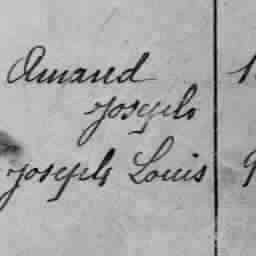 Amand
Joseph
Joseph Louis